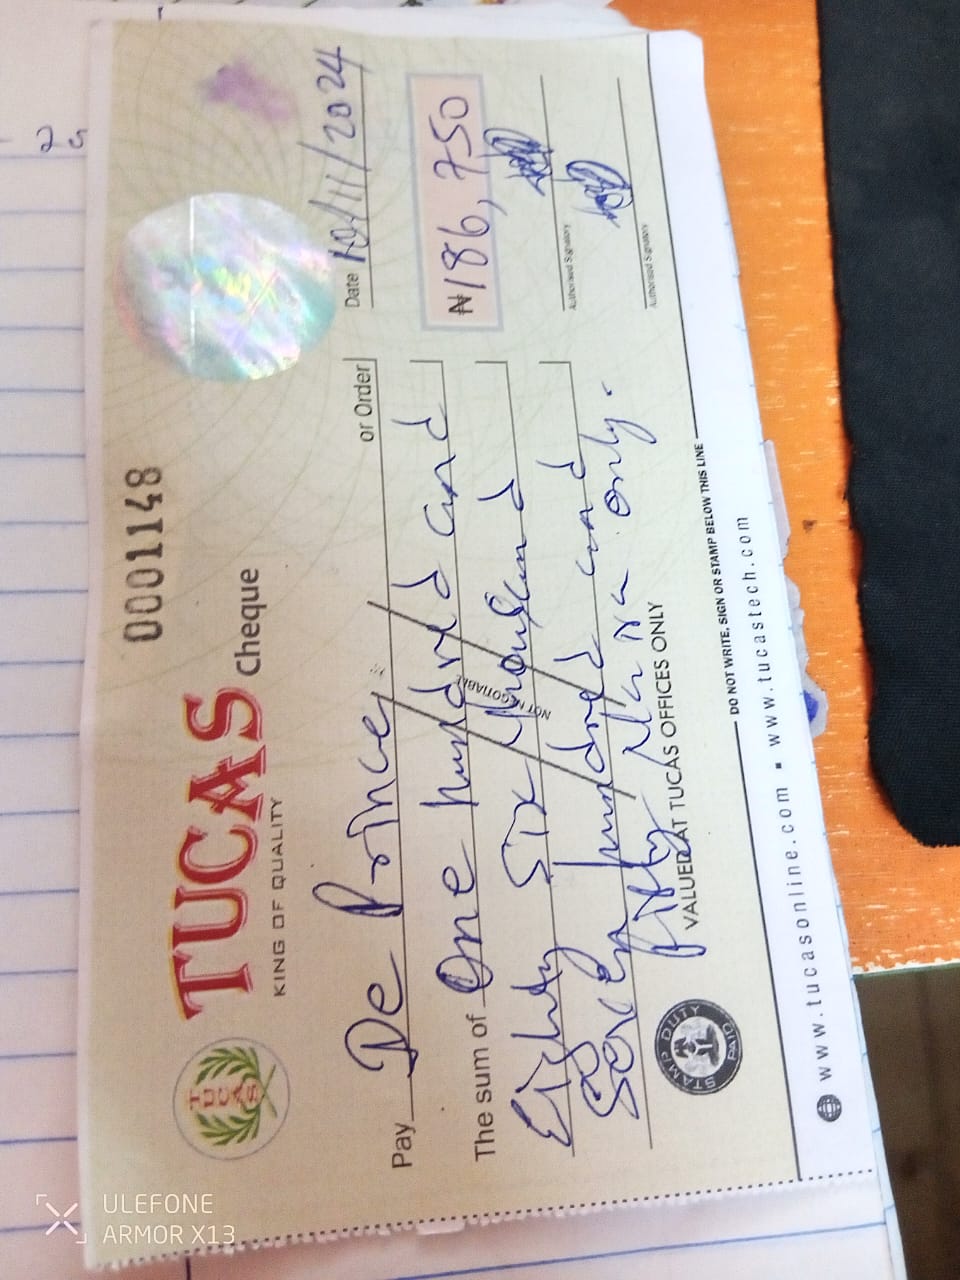 0001148
TUCAS
KING OF QUALITY
Cheque
TUCAS
Date 10/11/2024
Pay De Prince or Order
The sum of One hundred and
₦186,750
Eighty Six thousand
Seven hundred and
fifty Naira only.
NOT NEGOTIABLE
Authorised Signatory
Authorised Signatory
VALUED AT TUCAS OFFICES ONLY
STAMP DUTY PAID
DO NOT WRITE, SIGN OR STAMP BELOW THIS LINE
www.tucasonline.com ▪ www.tucastech.com
ULEFONE
ARMOR X13